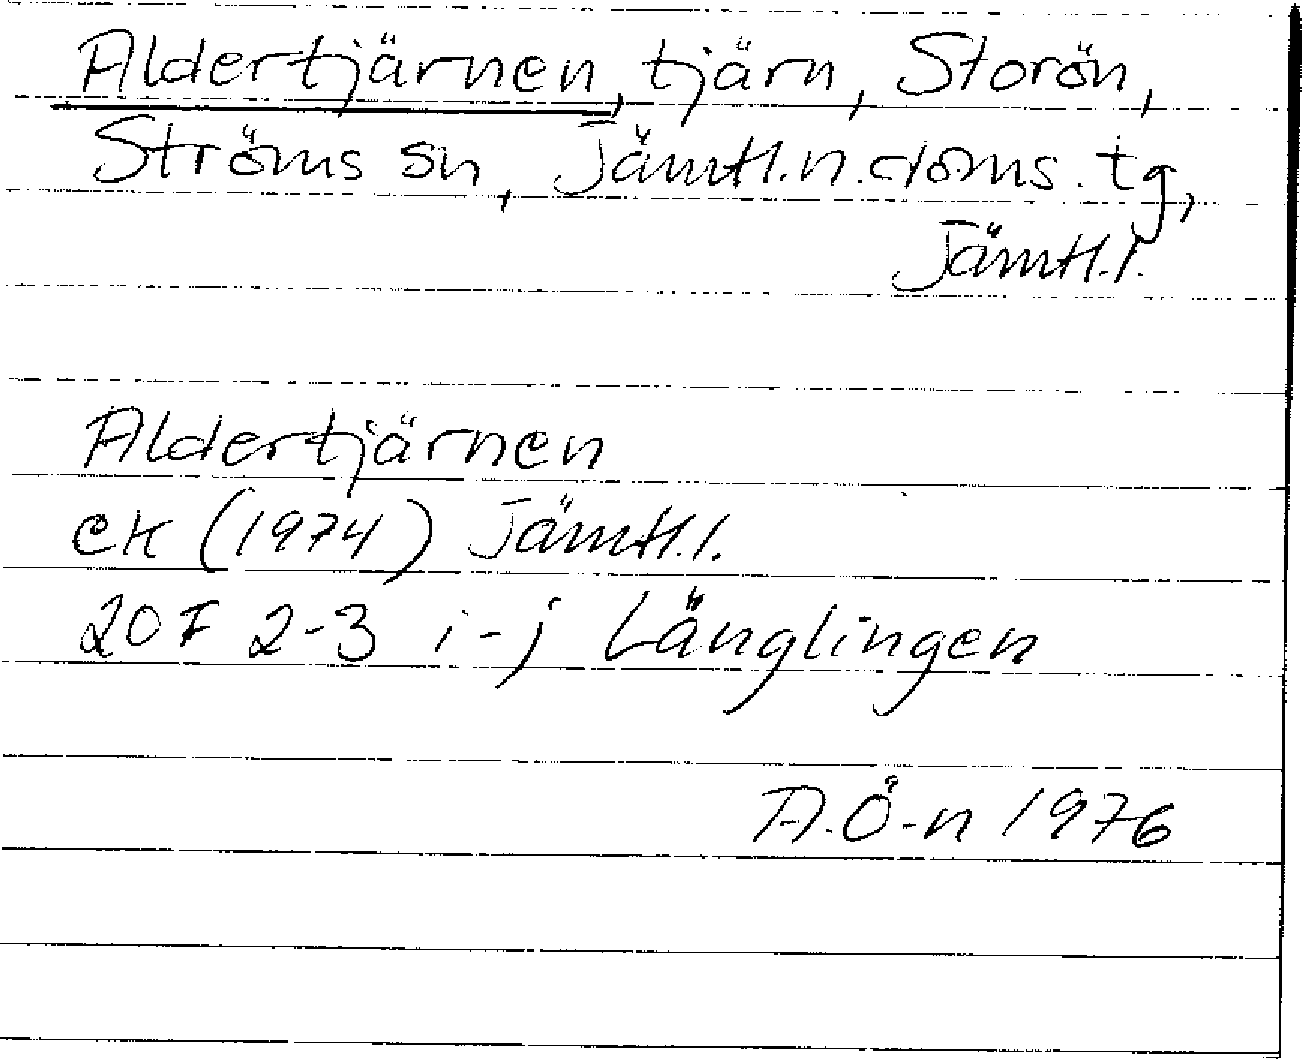 Aldertjärnen, tjärn, Storön,
Ströms sn, Jämtl.n.doms.tg,
Jämtl.l.
Aldertjärnen
ek (1974) Jämtl.l.
20F 2-3 i-j Länglingen
A.Ö-n 1976